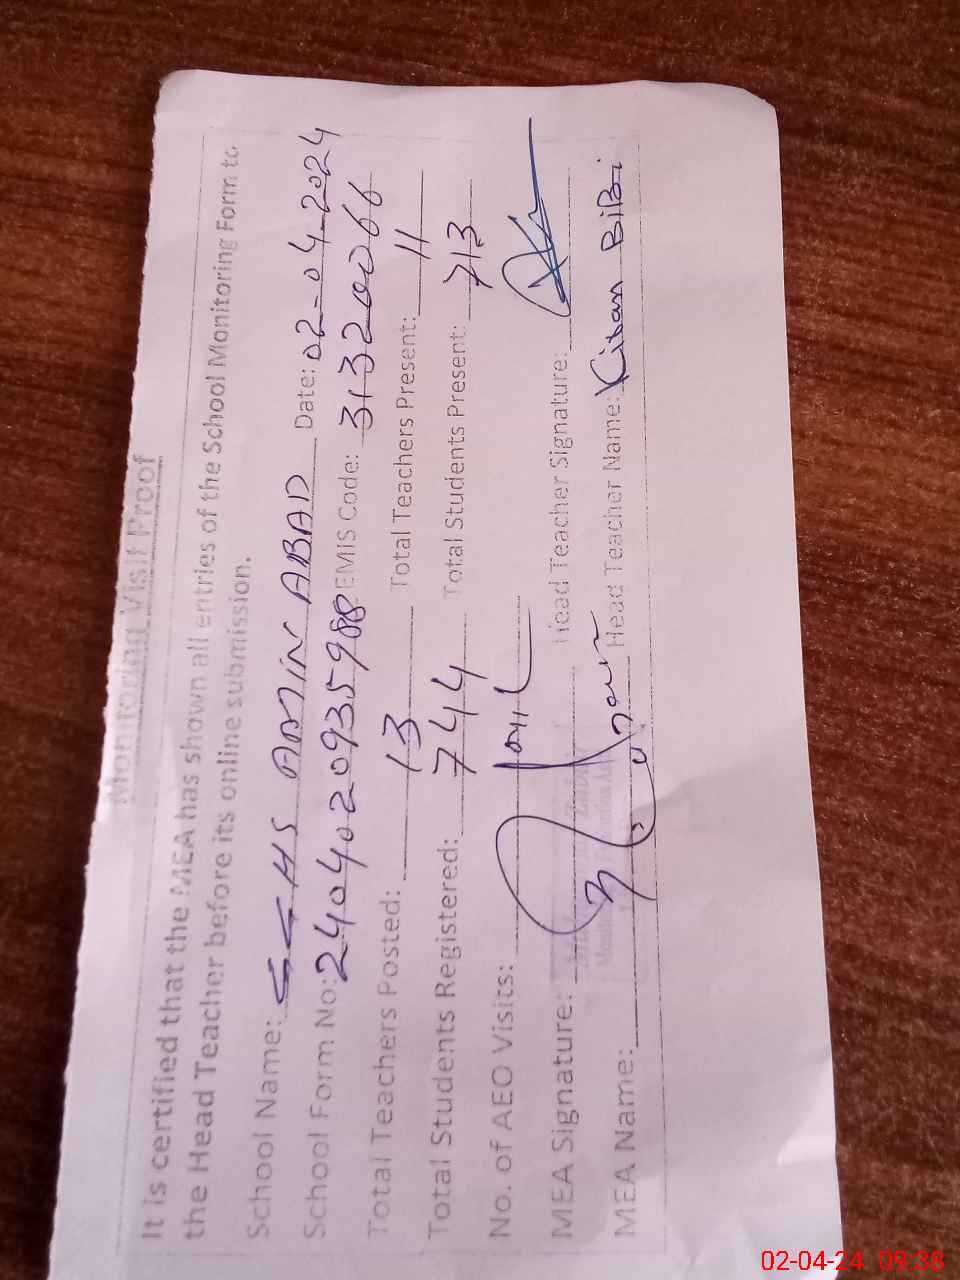 Monitoring Visit Proof
It is certified that the MEA has shown all entries of the School Monitoring Form to
the Head Teacher before its online submission.
School Name: GGHS AMIN ABAD Date: 02-04-2024
School Form No: 2404020935988 EMIS Code: 31320066
Total Teachers Posted: 13 Total Teachers Present: 11
Total Students Registered: 744 Total Students Present: 713
No. of AEO Visits: Nil
MEA Signature: Head Teacher Signature:
MEA Name: Head Teacher Name: Kiran BiBi
02-04-24 09:38